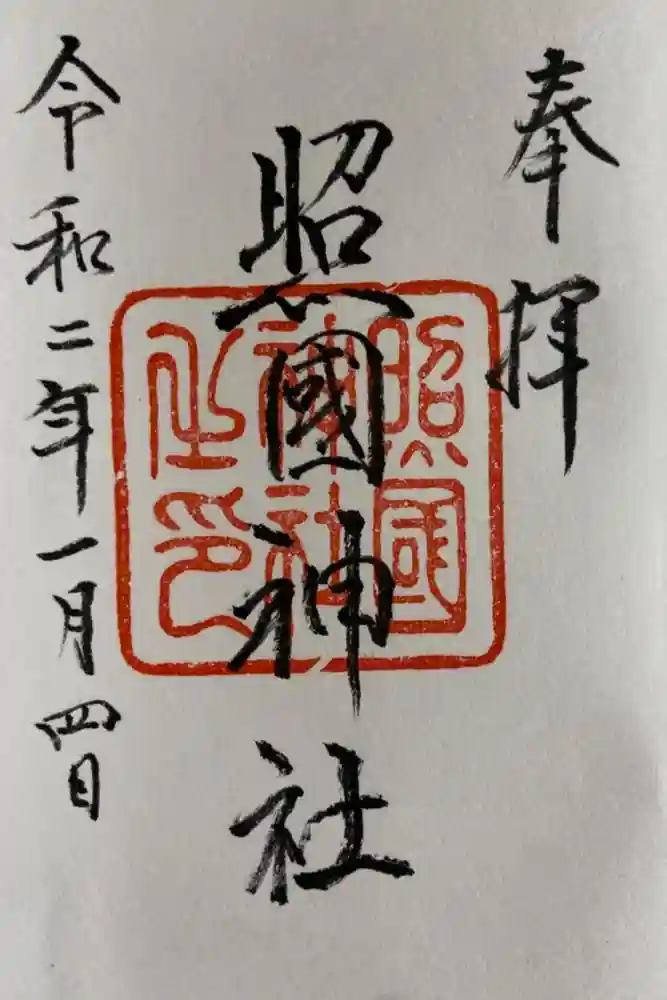 奉拝
照國神社
照國
神社
之印
令和二年一月四日